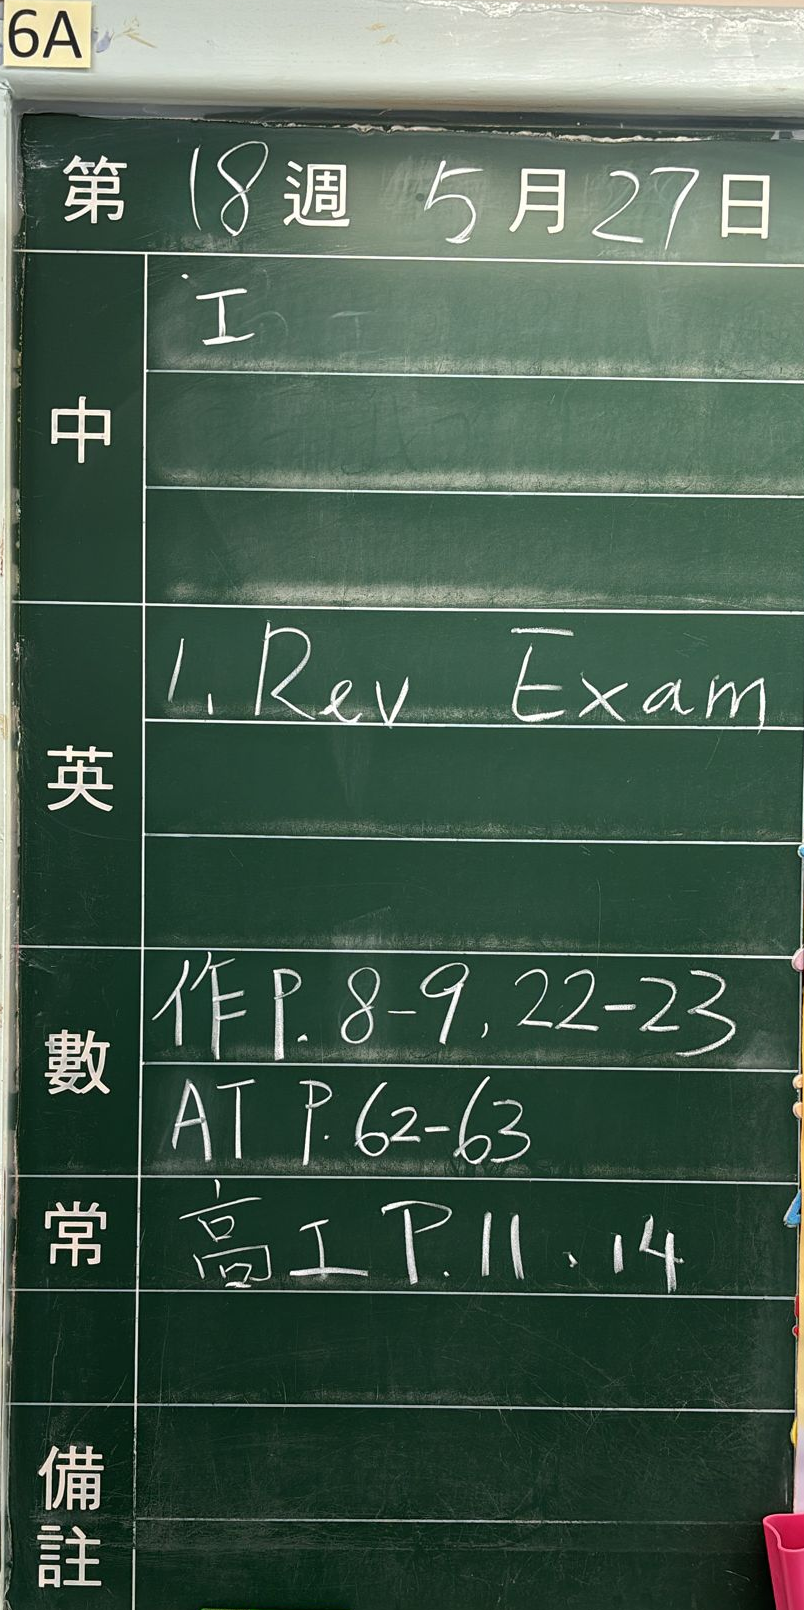 6A
第 18 週 5 月 27 日
中
工
英
1. Rev Exam
數
作 P. 8-9, 22-23
AT P. 62-63
常
高工 P. 11、14
備註